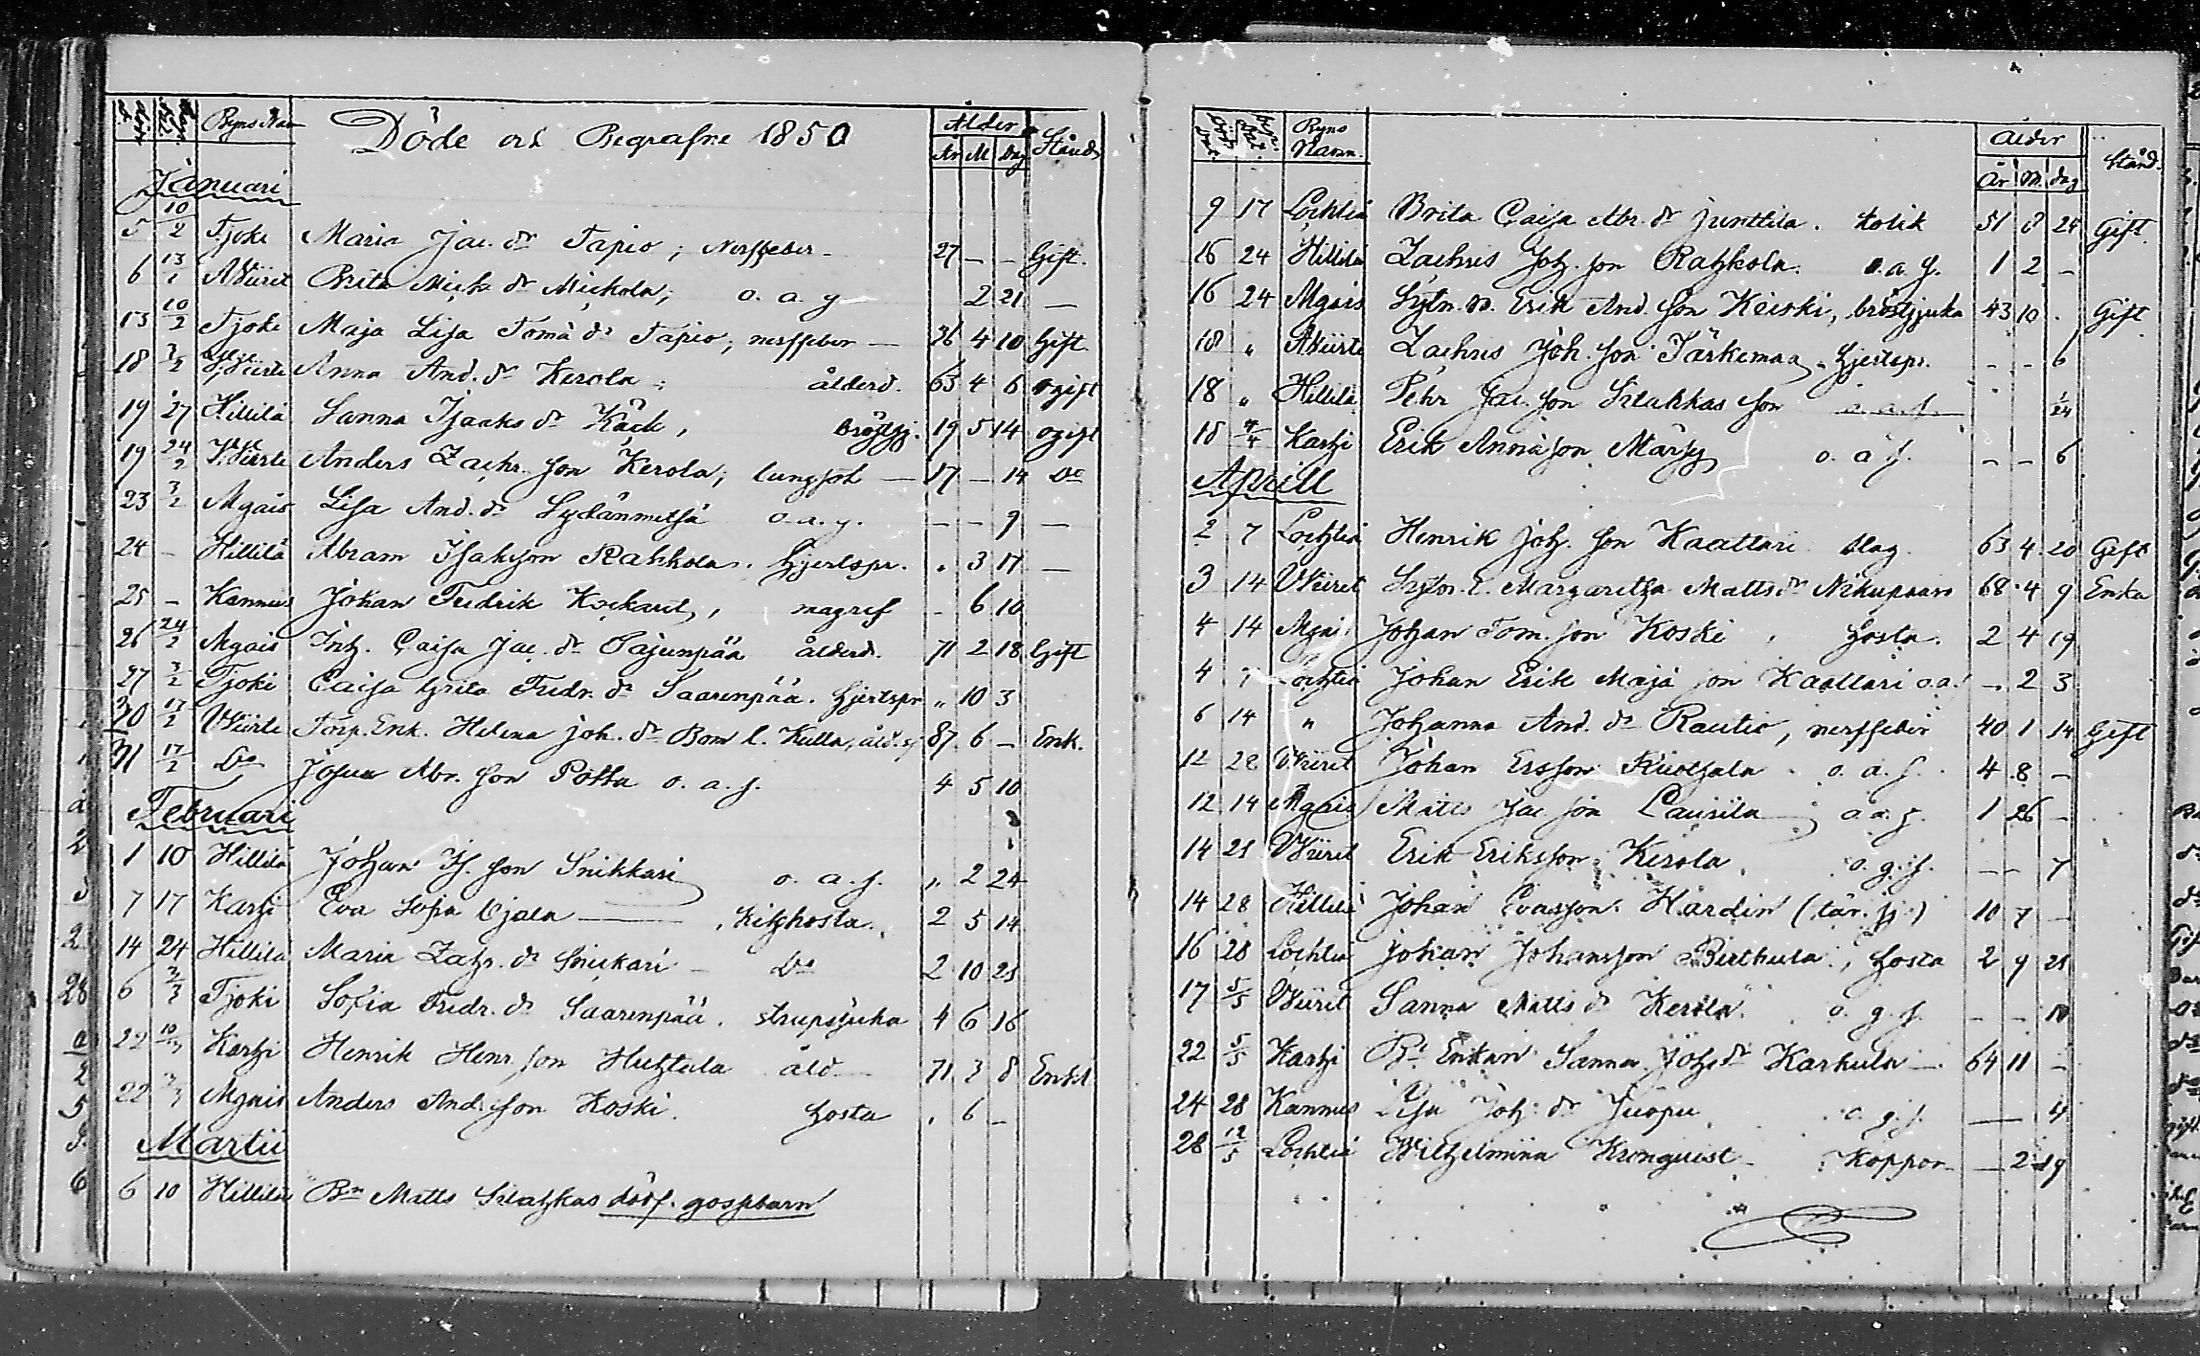 Byns Nan Döde och Begrafne 1850 Ålder Stånd
År M Dag
Januari
5 10/2 Tjoki Maria Jac. dr Tapio; Nerffeber - 27 - - Gift.
6 13/1 AWiiret Brita Mich. dr Michola; o. a. g 2 21 -
13 10/2 Tjoki Maja Lisa Tomä dr Tapio; nerffeber - 36 4 10 Gift
18 3/2 Anna And. dr Kerola; ålderd. 63 4 6 ogift
19 27 Hillilä Sanna Isaaks dr Käck, 19 5 14 ogift
19 24/2 Anders Zachr. son Kerola; lungsot - 17 - 14 Do
23 3/2 Mgais Lisa And. dr Sydänmetsä o. a. g. - - 9 -
24 - Hillilä Abram Isakson Rahkola. hjertspr. . 3 17 -
25 - Kannus Johan Fredrik - 6 10
26 24/2 Mgais Inh. Caisa Jac. dr Pajunpää ålderd. 71 2 18 Gift
27 3/2 Tjoki Caisa Greta Fredr. dr Saarenpää. hjertspr „ 10 3
30 17/2 WWiirte Torp. Enk. Helena Joh. dr Bom l. Kulla, 87 6 - Enk.
31 17/2 Do Josua Abr. son Potka o. a. s. 4 5 10
Februari
1 10 Hillilä Johan Is. son Snikkari o. a. s. „ 2 24
7 17 Karhi Eva Sofia Ojala - , kikhosta. 2 5 14
14 24 Hillilä Maria Zahr. dr Snickari - Do 2 10 21
6 3/3 Tjoki Sofia Fredr. dr Saarenpää. strupsjuka 4 6 16
22 10/3 Karhi Henrik Henr. son Huhtala åld 71 3 8 Enkl
22 3/3 Mgais Anders And. son Koski. hosta . 6 -
Martii
6 10 Hillilä Bn Matts Silahkas dödf. gossebarn
Byns Namn. Ålder Stånd.
År M. dag
9 17 Lochteå Brita Caisa Abr. dr Junttila. kolik 51 8 24 Gift.
16 24 Hillilä Zachris Joh. son Rahkola. o. a. g. 1 2 -
16 24 Mgais Erik And. son Keiski, bröstsjuka 43 10 . Gift
18 „ AWiirte Zachris Joh. son Järkemaa. hjertspr. - - 6
18 „ Hillilä Pehr Jac. son Silahkas son o. a. s. 1/24
18 4/4 Karhi Erik Annäson Märsy o. a s. - - 6
Aprill
2 7 Lochteå Henrik Joh. son Kaattari slag. 63 4 20 Gift
3 14 WWiiret Margaretha Matts dr 68 4 9 Enka
4 14 Mgais Johan Tom. son Koski . hosta. 2 4 19
4 7 Lochteå Johan Erik Majä son Kaattari o.a.s - 2 3
6 14 „ Johanna And. dr Rautio, nerffeber 40 1 14 Gift
12 28 WWiiret Johan Ersson o. a. s. 4 8 -
12 14 Mgais Matts Jac son Laurila o. a. s. 1 26 -
14 21 WWiiret Erik Eriksson Kerola. o. g. s. - - 7
14 28 Hillilä Johan Evasson Härdin (tär. sj.) 10 7 -
16 28 Lochteå Johan Johansson Berthula, hosta 2 9 21
17 5/5 WWiiret Sanna Matts dr Kerola. o. g. s. - - 10
22 5/5 Karhi Enkan Sanna Joh. dr Karhula - 64 11 -
24 28 Kannus Lisa Joh. dr Juopu o. g. s. - 4
28 12/5 Lochteå Wilhelmina Kronquist - Koppor - 2 19